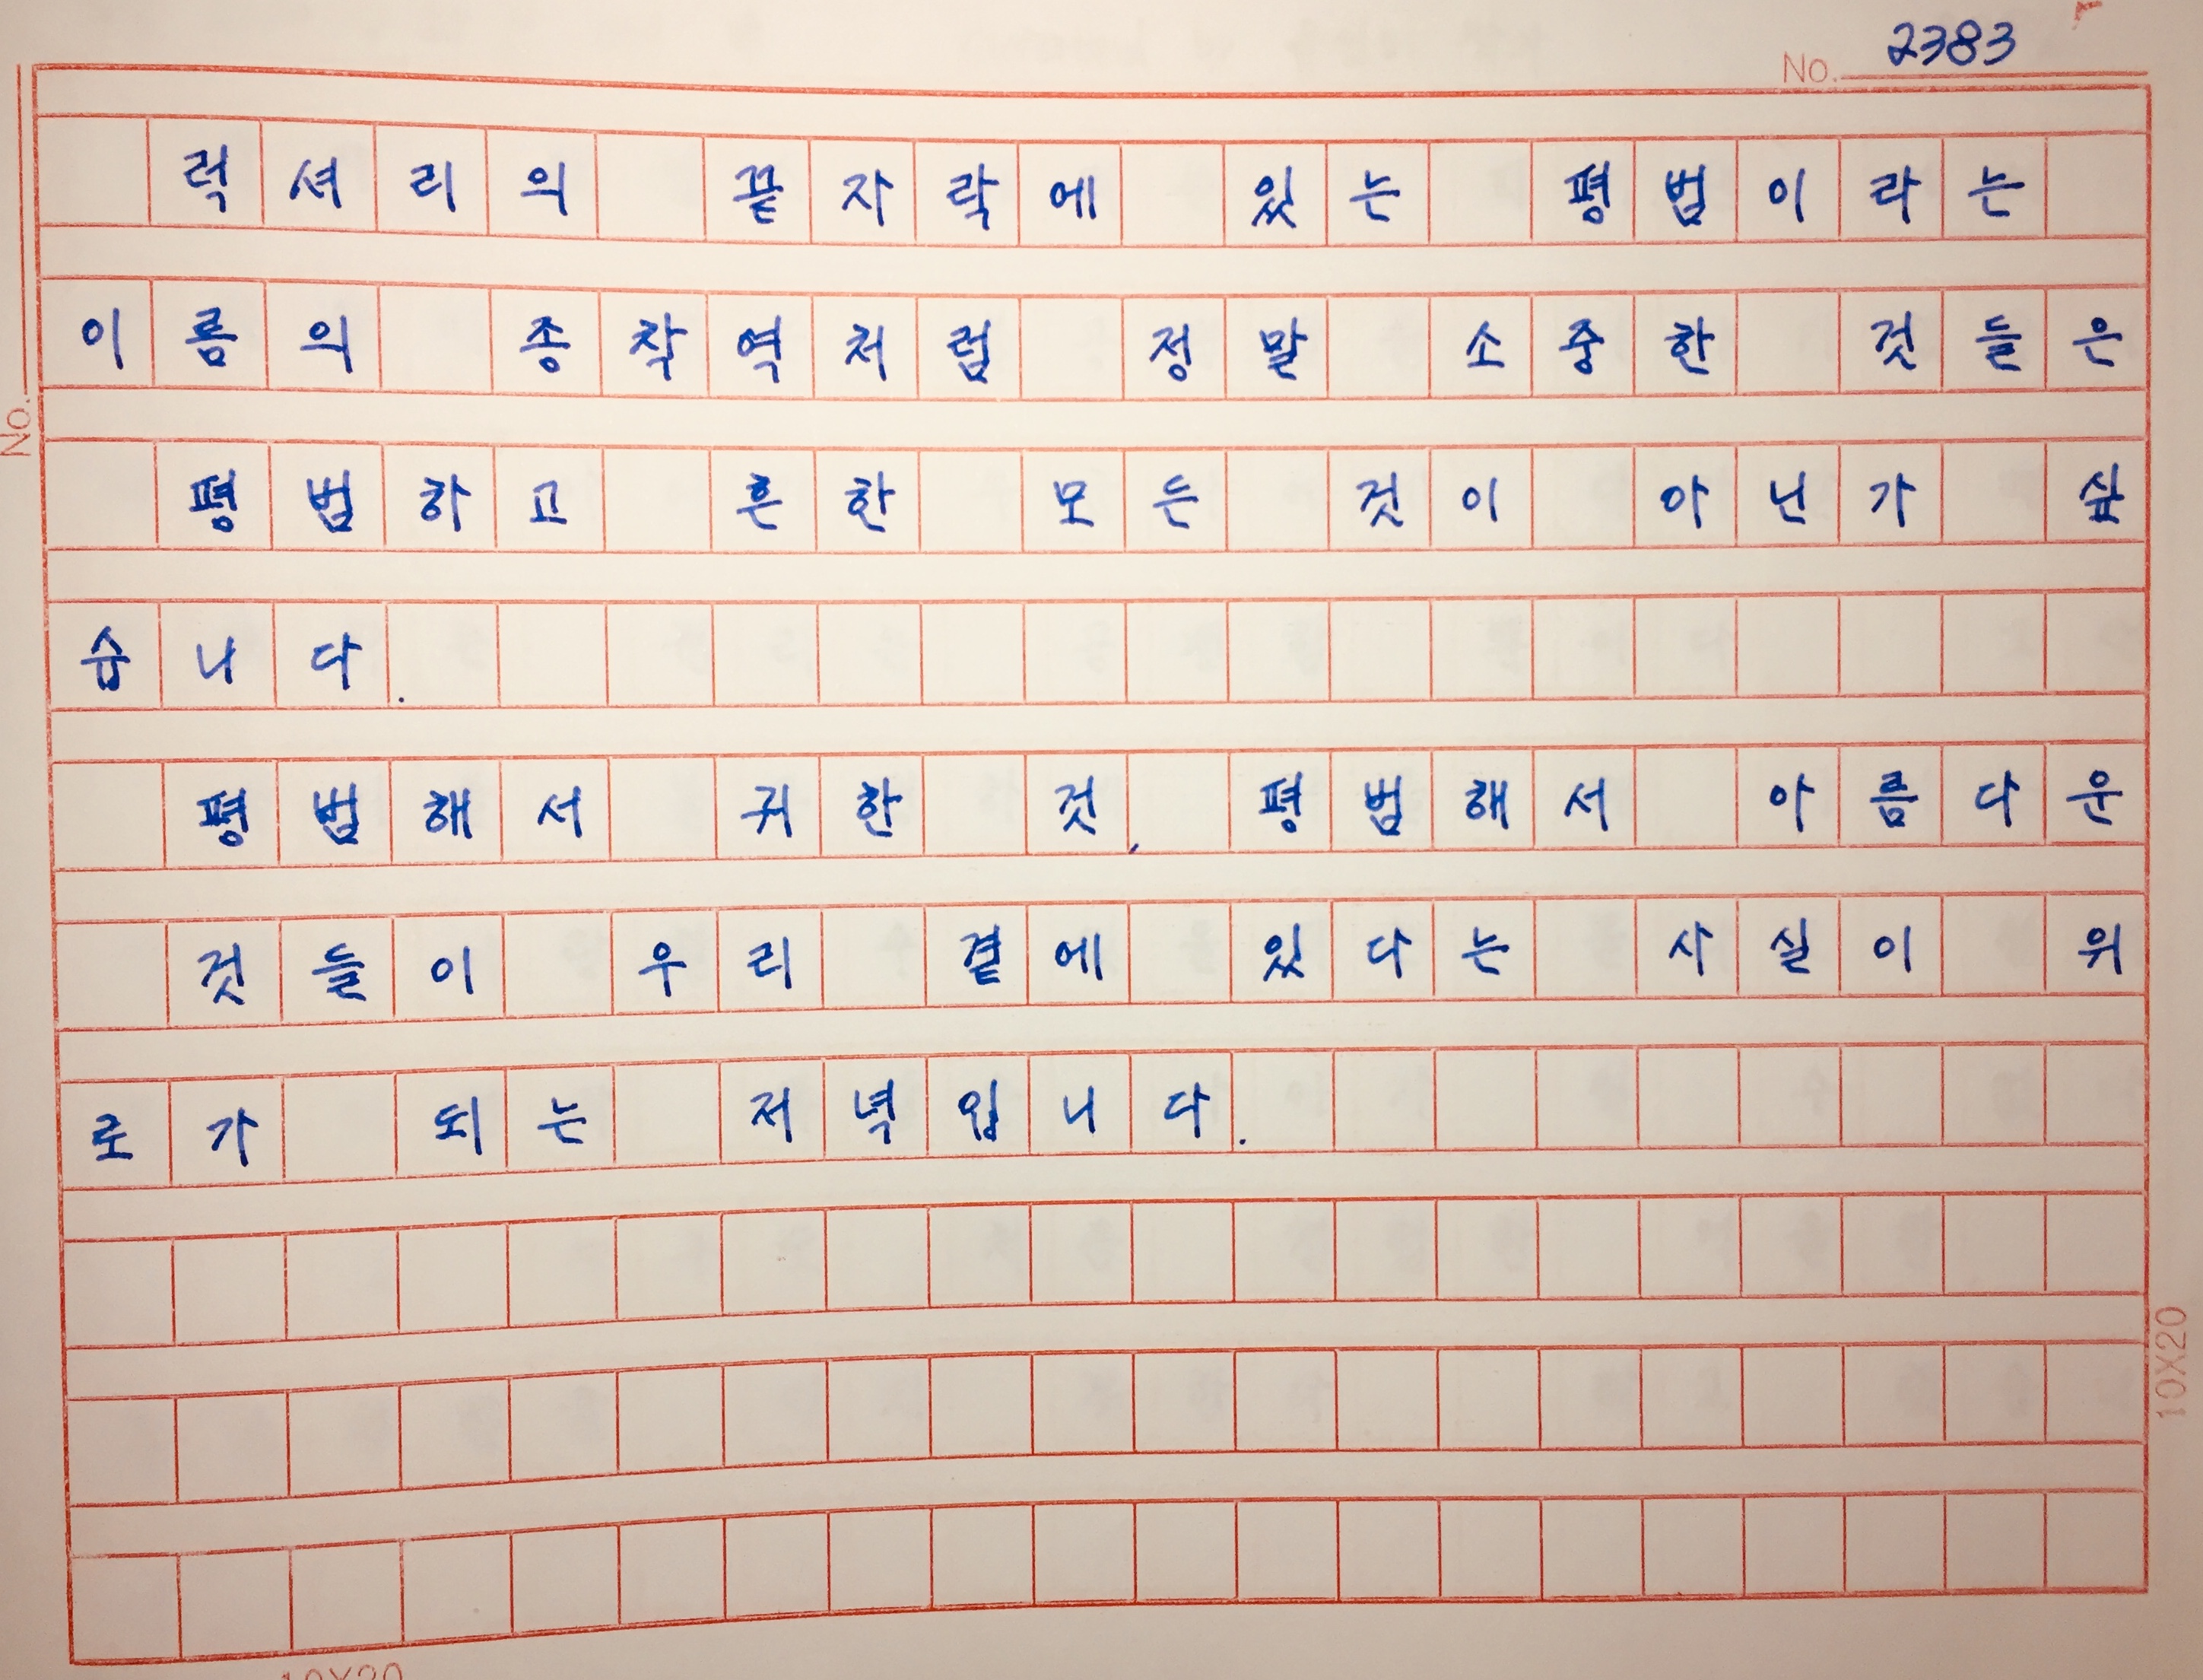 No. 2383
럭셔리의 끝자락에 있는 평범이라는
이름의 종착역처럼 정말 소중한 것들은
평범하고 흔한 모든 것이 아닌가 싶
습니다.
평범해서 귀한 것, 평범해서 아름다운
것들이 우리 곁에 있다는 사실이 위
로가 되는 저녁입니다.
No.
10X20
10X20